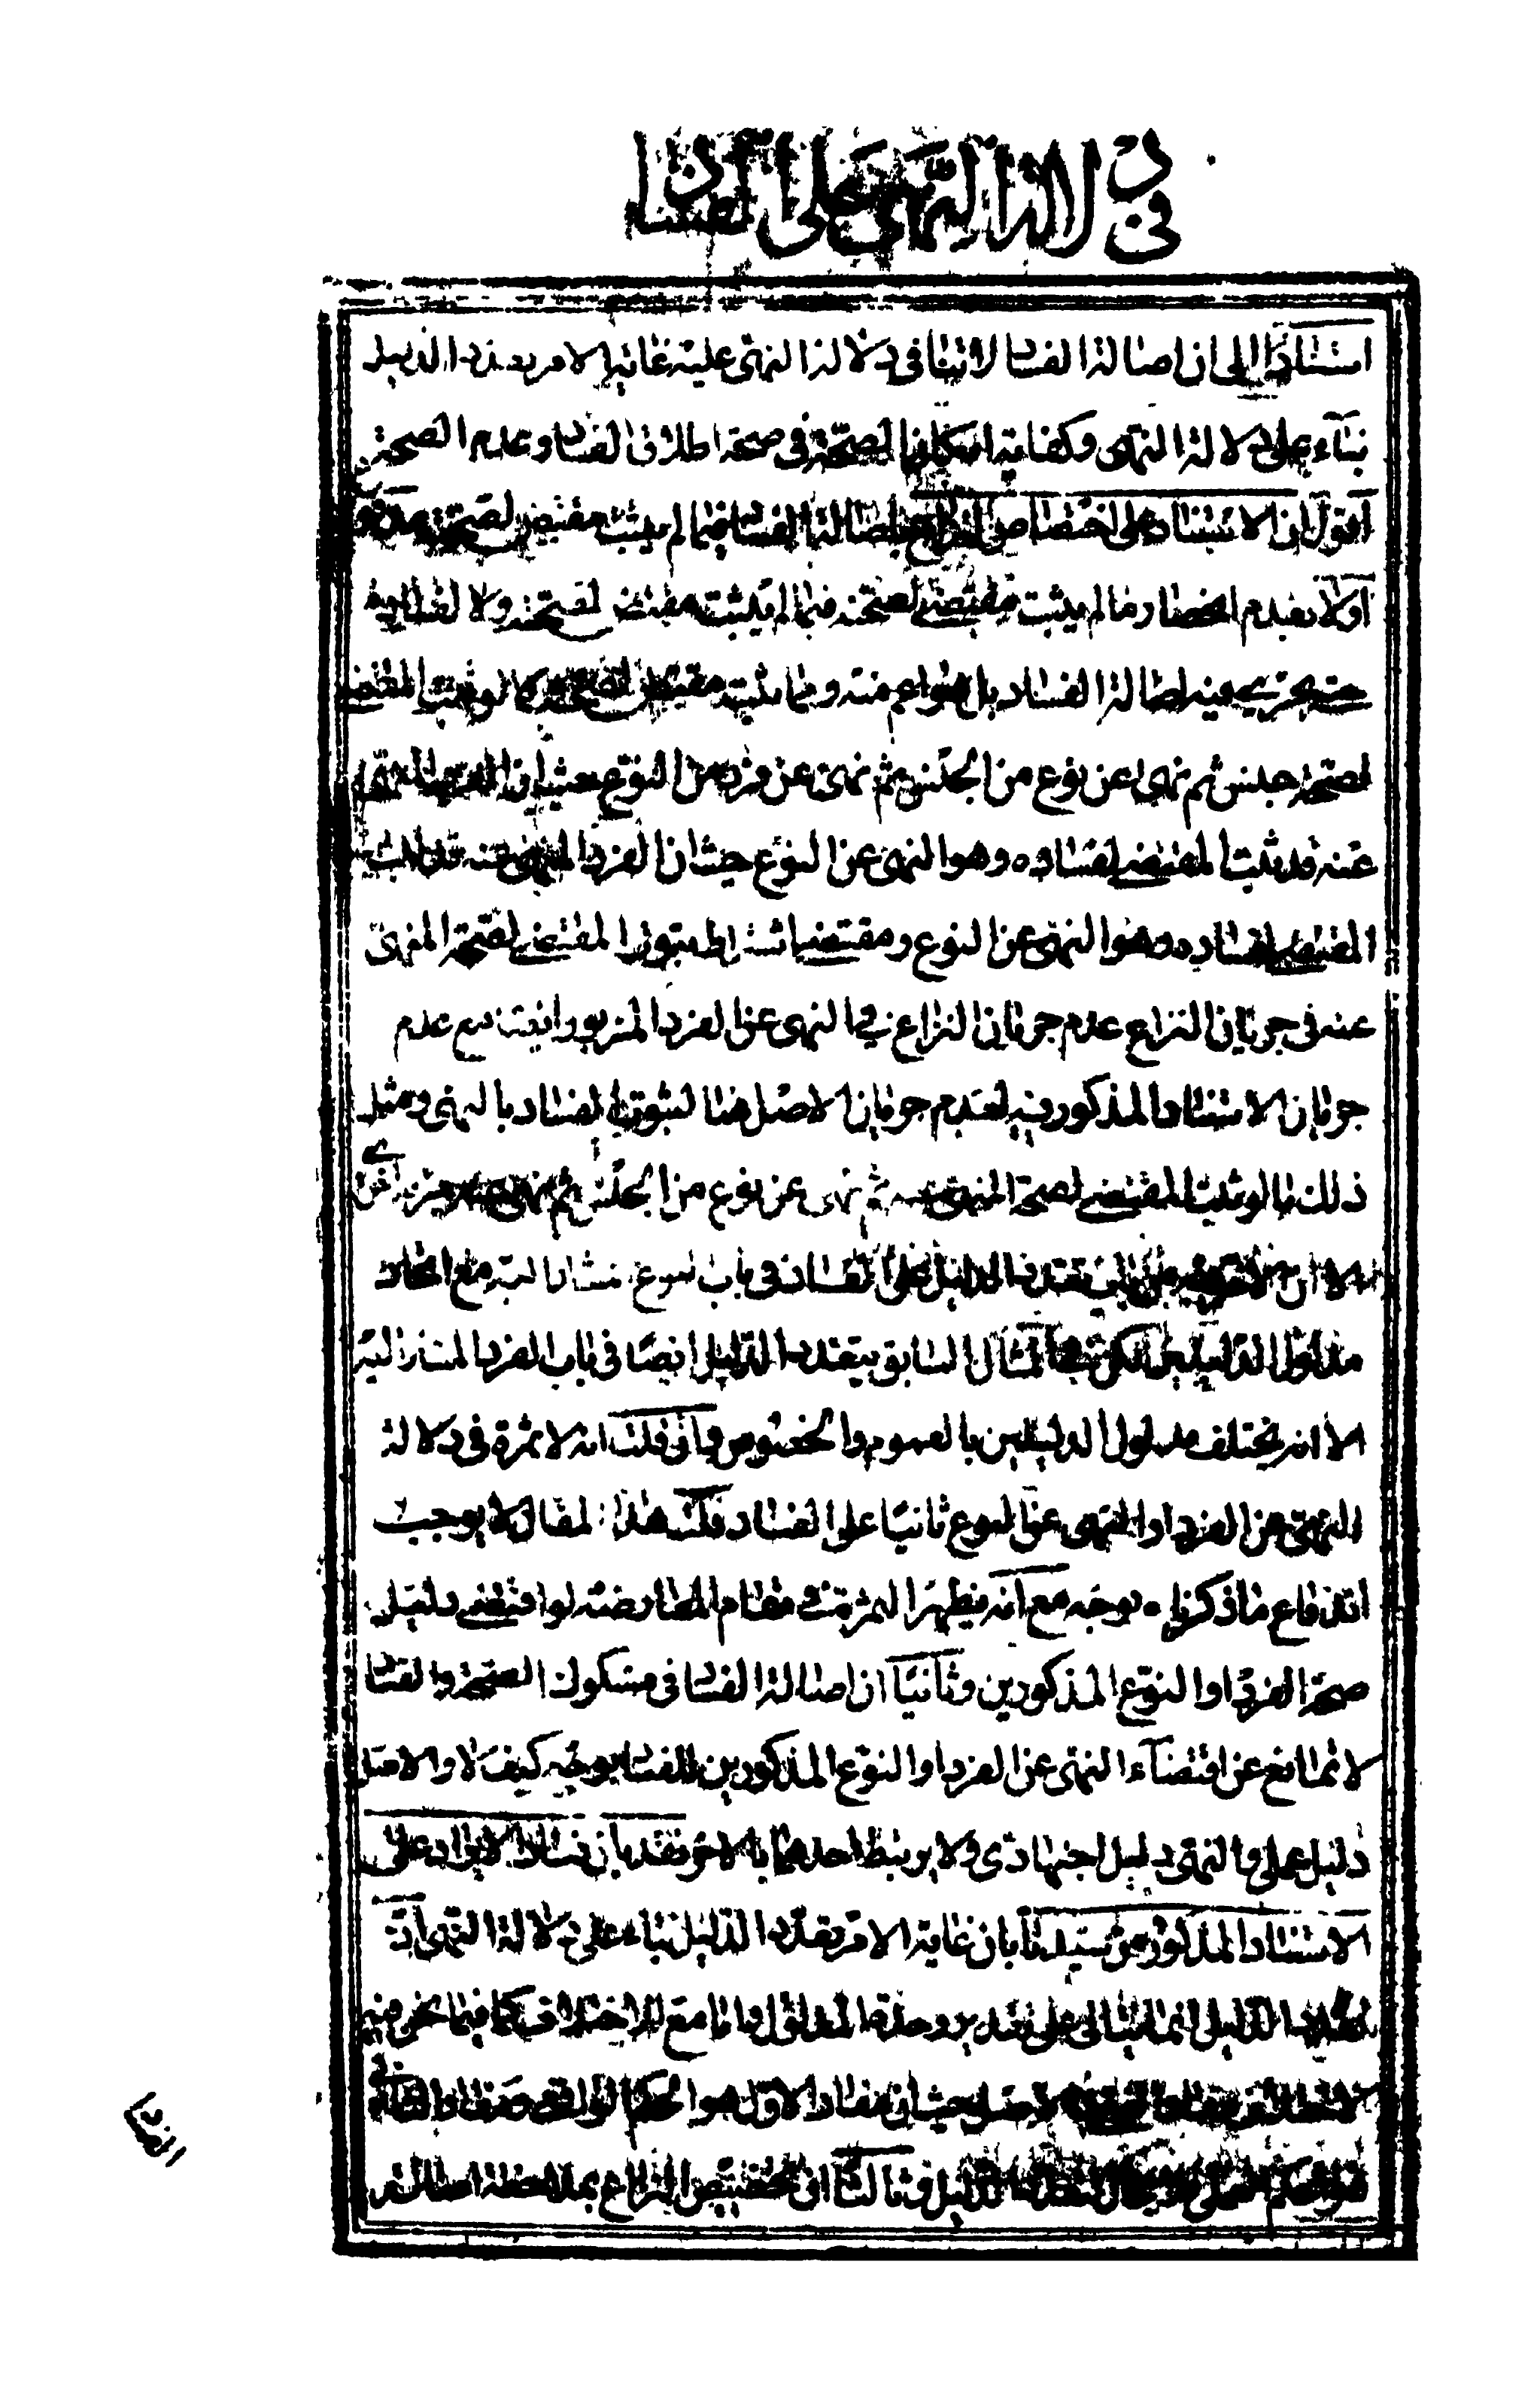 في دلالة النهي على الفساد
استنادا الى ان اصالة الفساد لا تنافى دلالة النهى عليه غاية الامر تعدد الدليل
بناء على دلالة النهى وكفاية امكان الصحة فى صحة اطلاق الفساد وعدم الصحة
اقول ان الاستناد على اختصاص النزاع باصالة الفساد فيما لم يثبت مقتضى لصحته مدفوع
اولا بعدم انحصار ما لم يثبت مقتضى لصحته فيما لم يثبت مقتضى لصحته ولا لفساده
حتى يجرى فيه اصالة الفساد بل هو اعم منه وما يثبت مقتضى لصحته كما لو ثبت المقتضى
لصحة جنس ثم نهى عن نوع من الجنس ثم نهى عن فرد من النوع حيث ان الفرد المنهى
عنه قد ثبت المقتضى لفساده وهو النهى عن النوع حيث ان الفرد المنهى عنه قد ثبت
المقتضى لفساده وهو النهى عن النوع ومقتضى اشتراط ثبوت المقتضى لصحة المنهى
عنه فى جريان النزاع عدم جريان النزاع في النهى عن الفرد المزبور ايضا مع عدم
جريان الاستناد المذكور فيه لعدم جريان الاصل هنا لثبوت الفساد بالنهى ومثل
ذلك ما لو ثبت المقتضى لصحة المنهى عنه ثم نهى عن نوع من الجنس ثم نهى اخرى
الا ان الامر من باب تعدد الدليل على الفساد فى باب النوع المشار اليه مع اتحاد
مدلول الدليلين لكن فى المثال السابق يتعدد الدليل ايضا فى باب الفرد المشار اليه
الا انه يختلف مدلول الدليلين بالعموم والخصوص فان قلت انه لا ثمرة فى دلالة
النهى عن الفرد او النهى عن النوع ثانيا على الفساد قلت هذا المقال لا يوجب
اندفاع ما ذكرنا بوجه مع انه يظهر الثمرة في مقام المعارضة لو اقتضى دليل
صحة الفرد او النوع المذكورين وثانيا ان اصالة الفساد فى مشكوك الصحة والفساد
لا تمانع عن اقتضاء النهى عن الفرد او النوع المذكورين للفساد بوجه كيف لا والاصل
دليل عملى والنهى دليل اجتهادى ولا يرتبط احدهما بالاخر فقد بان فساد الايراد على
الاستناد المذكور من سيدنا بان غاية الامر تعدد الدليل بناء على دلالة النهى اذ
تعدد الدليل انما يتاتى على تقدير وحدة المدلول واما مع الاختلاف كما فيما نحن فيه
حيث ان مفاد الاول هو الحكم الواقعى ومفاد الثانى
هو الحكم العملى فلا مجال لتعدد الدليل وثالثا ان تخصيص النزاع بملاحظة اصالة
الفساد